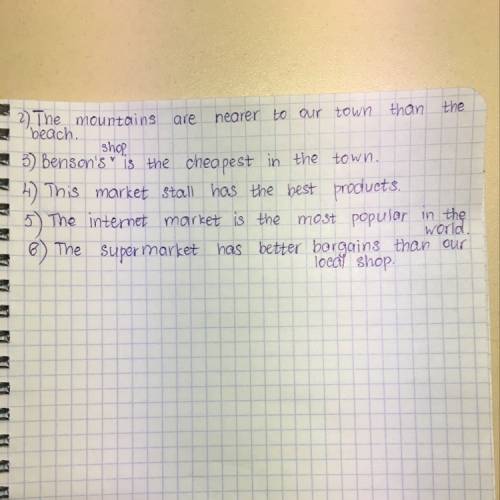 2) The mountains are nearer to our town than the
beach.
shop
3) Benson's ˅ is the cheapest in the town.
4) This market stall has the best products.
5) The internet market is the most popular in the
world.
6) The supermarket has better bargains than our
local shop.